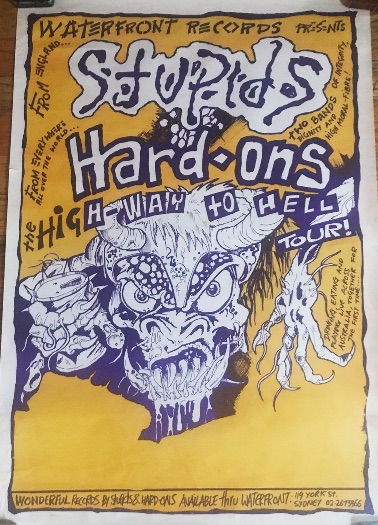 WATERFRONT RECORDS PRESENTS
FROM ENGLAND...
Stupids
TWO BANDS OF INTEGRITY,
DIGNITY AND
HIGH MORAL-FIBRE!
FROM EVERYWHERE
ALL OVER THE WORLD...
Hard-ons
the HIGH-WAY to HELL
TOUR!
EATING AND
PLAYING LIVE ACROSS
AUSTRALIA, TOGETHER FOR
THE FIRST TIME
WONDERFUL RECORDS BY STUPIDS & HARD-ONS AVAILABLE thru WATERFRONT. 119 YORK ST.
SYDNEY